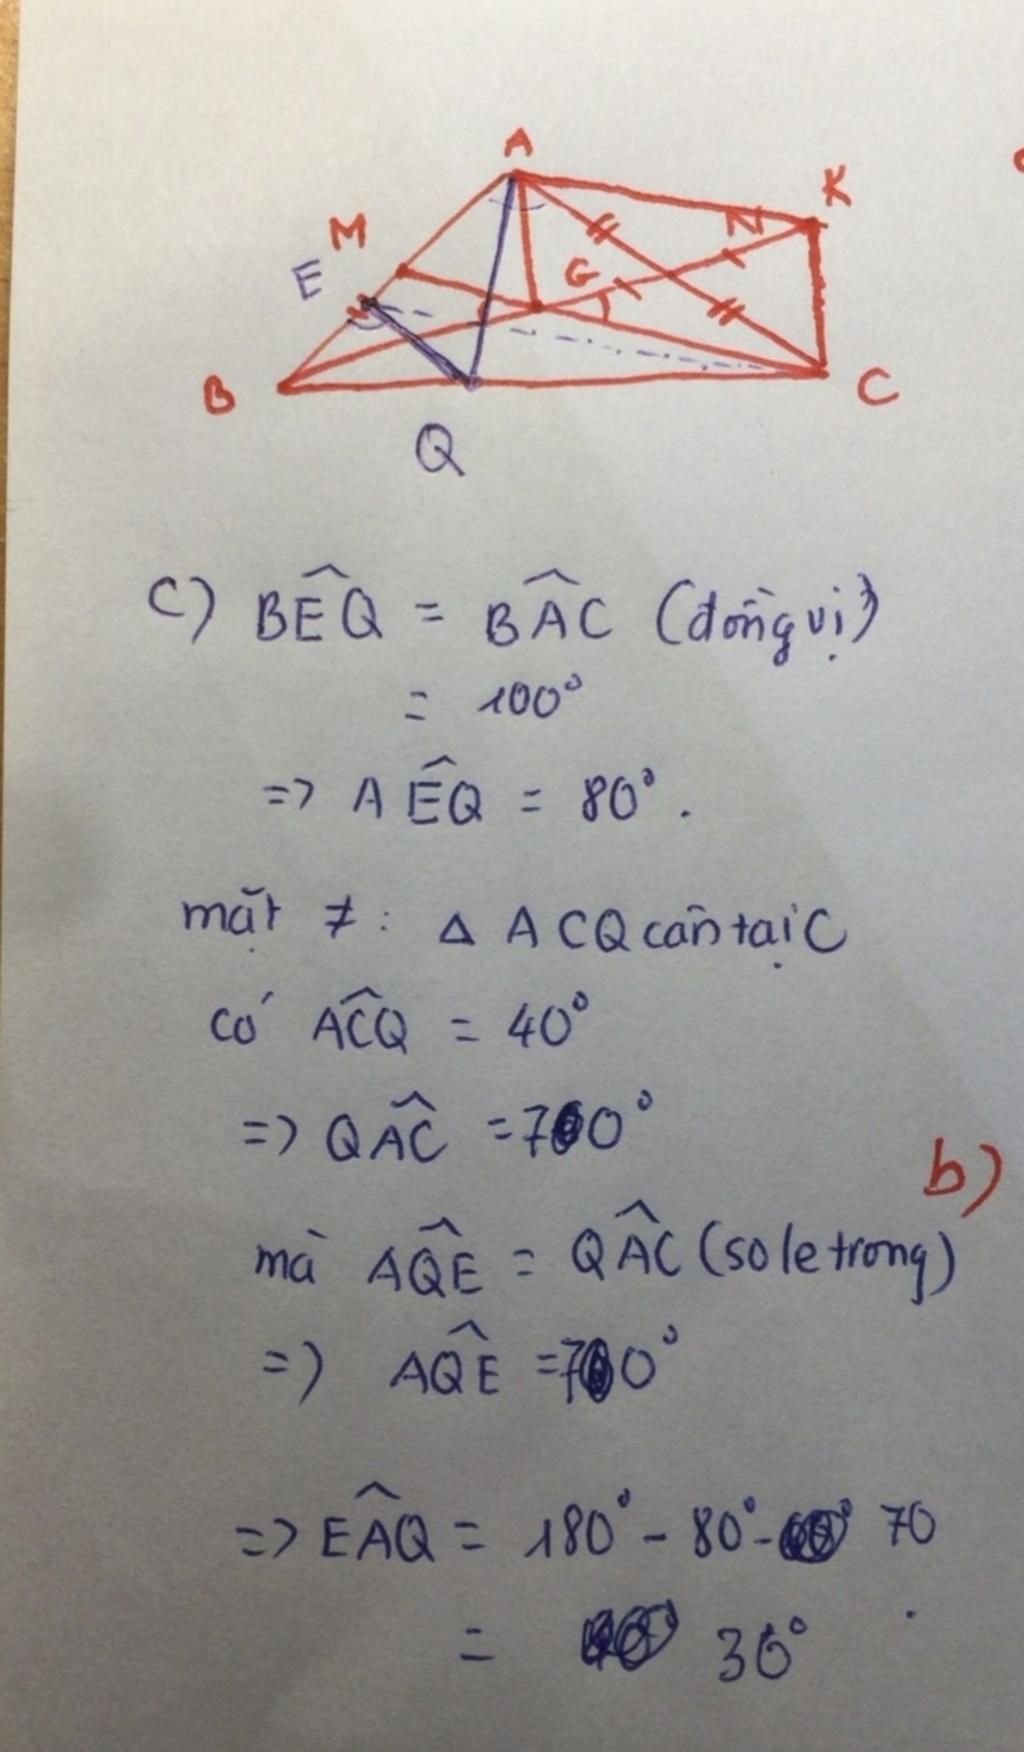 A
K
M
N
E
G
B
C
Q
c) BÊQ = BÂC (đồng vị)
= 100°
=> AÊQ = 80°.
mặt ≠: Δ ACQ cân tại C
có AĈQ = 40°
=> QÂC = 70°
b)
mà AQ̂E = QÂC (so le trong)
=> AQ̂E = 70°
=> EÂQ = 180° - 80° - 70
= 30°